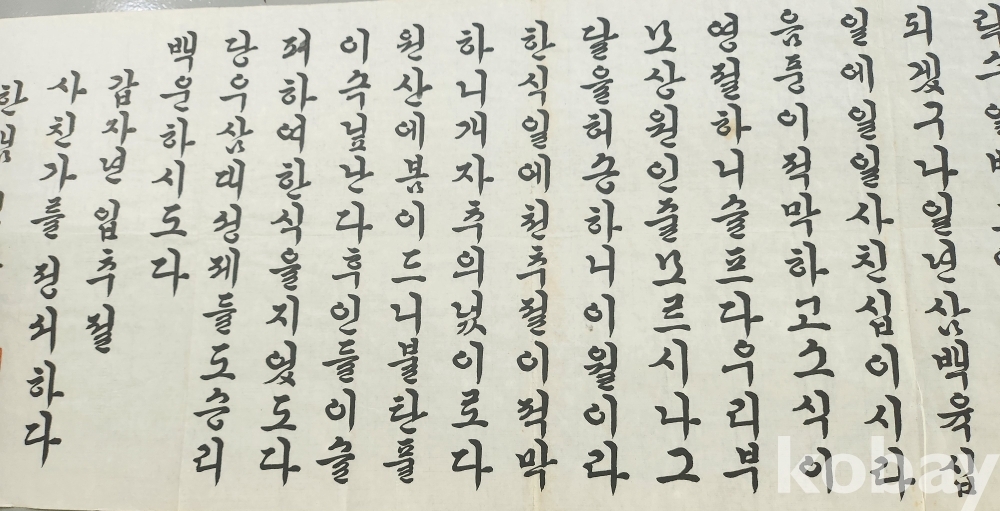 락수일백
되겠구나일년삼백육십
일에일일사친십이시라
음풍이적막하고소식이
영절하니슬프다우리부
모상원인줄모르시나그
달을허승하니이월이라
한식일에천추절이적막
하니개자추의넋이로다
원산에봄이드니불탄풀
이수닢난다후인들이슬
퍼하여한식을지엇도다
당우삼대성제들도승리
백운하시도다
갑자년입추절
사친가를정쇠하다
한샘
kobay